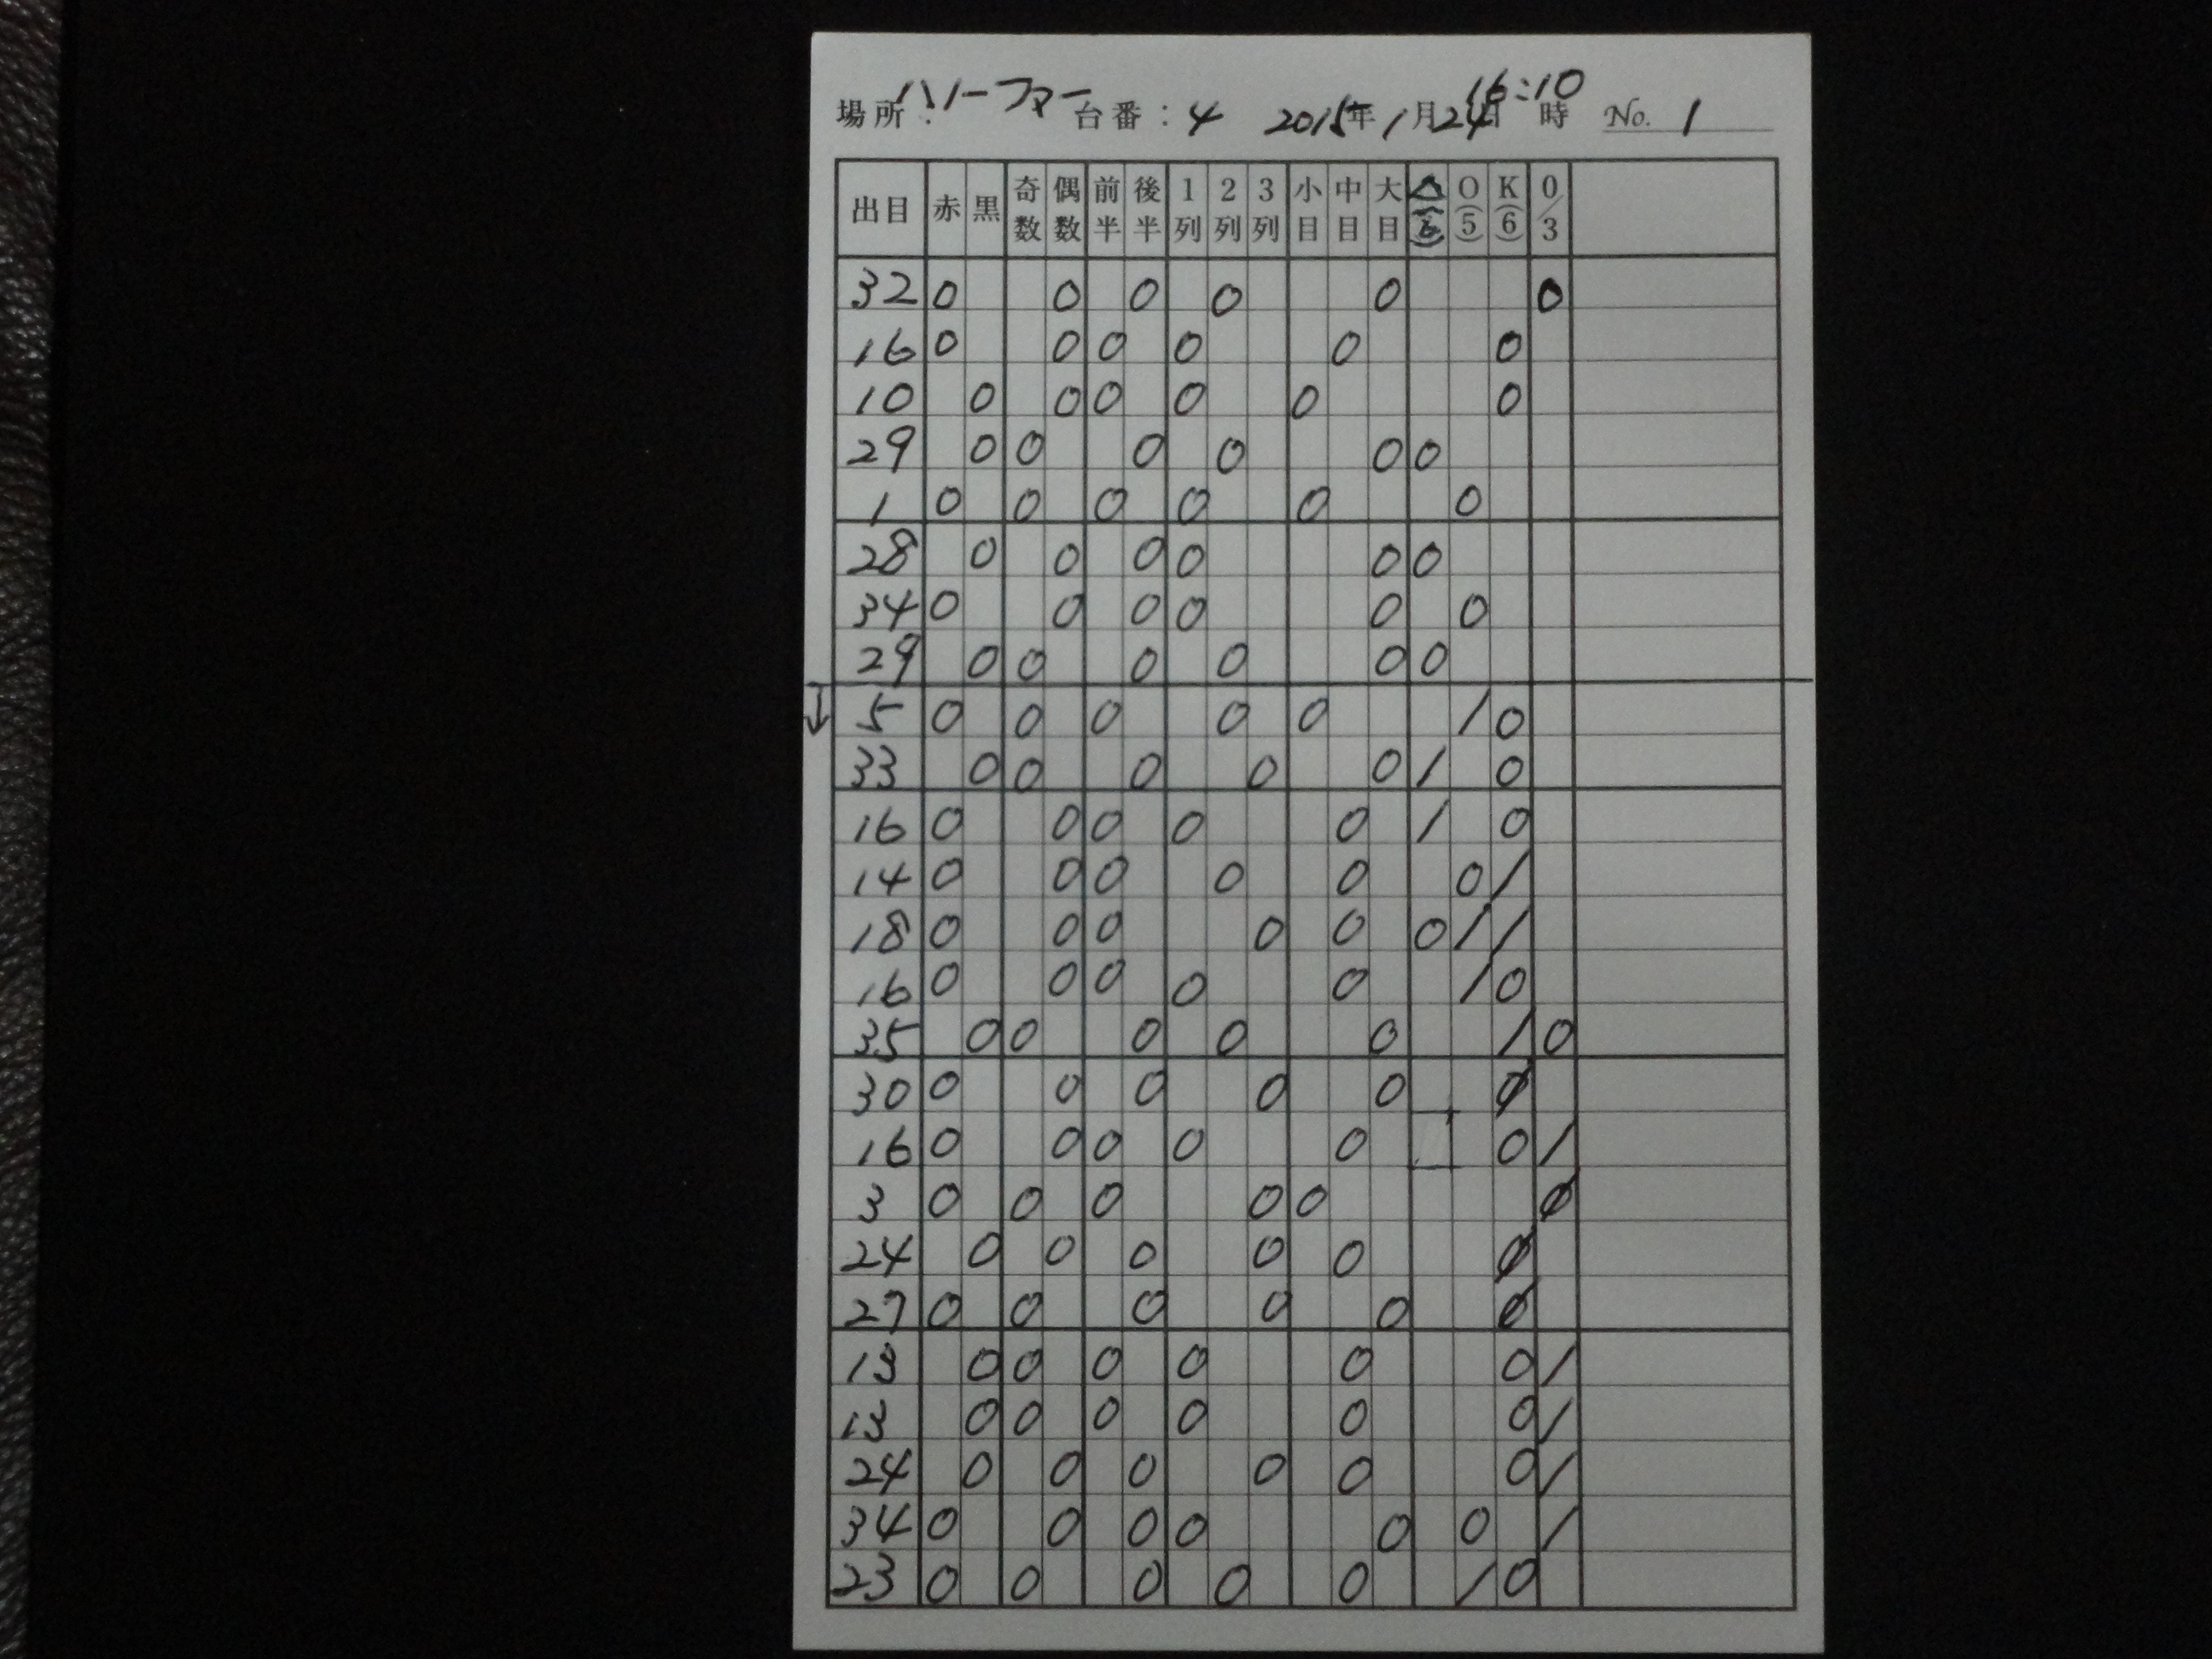 場所：ハリーファー 台番：4 2015年1月24日 16:10時 No. 1
出目 赤 黒 奇数 偶数 前半 後半 1列 2列 3列 小目 中目 大目 O(5) K(6) 0/3
32 0 0 0 0 0 0
16 0 0 0 0 0 0
10 0 0 0 0 0 0
29 0 0 0 0 0 0
1 0 0 0 0 0 0
28 0 0 0 0 0 0
34 0 0 0 0 0 0
29 0 0 0 0 0 0
↓ 5 0 0 0 0 0 / 0
33 0 0 0 0 0 / 0
16 0 0 0 0 0 / 0
14 0 0 0 0 0 0 /
18 0 0 0 0 0 0 / /
16 0 0 0 0 0 / 0
35 0 0 0 0 0 / 0
30 0 0 0 0 0 Ø
16 0 0 0 0 0 0 /
3 0 0 0 0 0 Ø
24 0 0 0 0 0 Ø
27 0 0 0 0 0 Ø
13 0 0 0 0 0 0 /
13 0 0 0 0 0 0 /
24 0 0 0 0 0 0 /
34 0 0 0 0 0 0 /
23 0 0 0 0 0 / 0